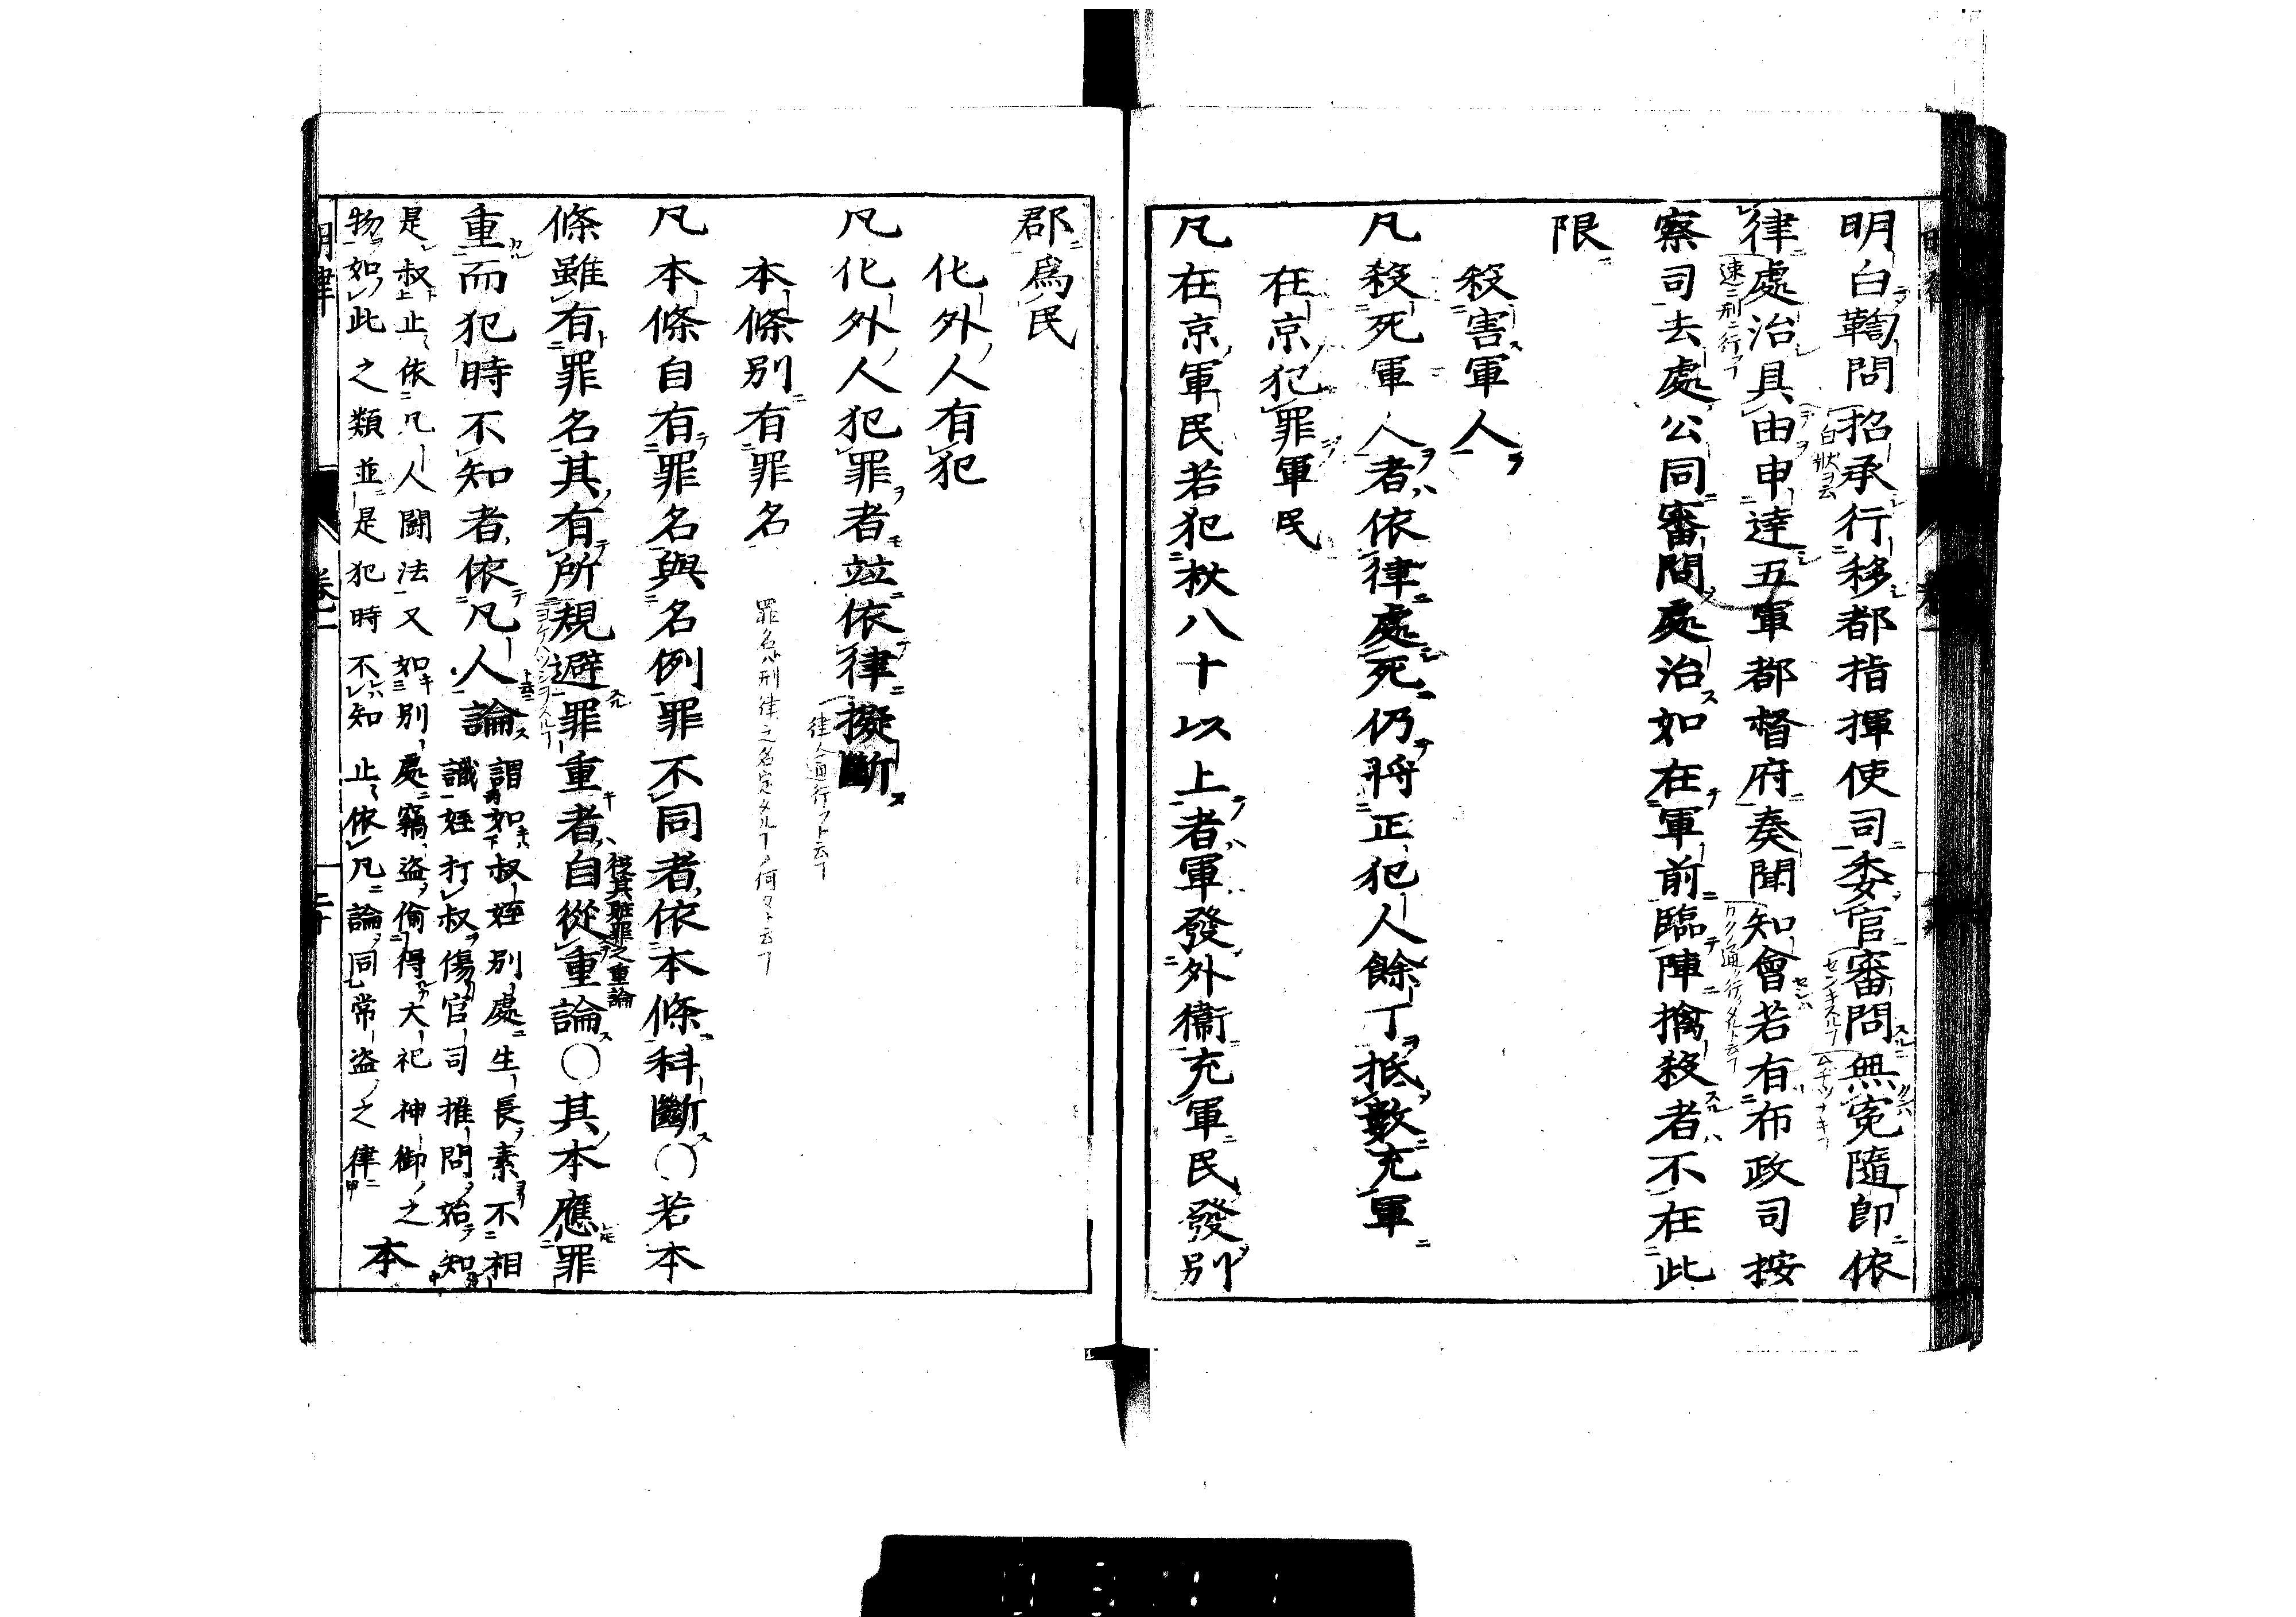 明白鞫問招承行移都指揮使司委官審問無寃隨即依
律處治具由申達五軍都督府奏聞知會若有布政司按
察司去處公同審問處治如在軍前臨陣擒殺者不在此
限
殺害軍人
凡殺死軍人者依律處死仍將正犯人餘丁抵數充軍
在京犯罪軍民
凡在京軍民若犯杖八十以上者軍發外衞充軍民發別
郡爲民
化外人有犯
凡化外人犯罪者竝依律擬斷
本條別有罪名
凡本條自有罪名與名例罪不同者依本條科斷○若本
條雖有罪名其有所規避罪重者自從重論○其本應罪
從其避罪之重論
重而犯時不知者依凡人論
謂如叔姪別處生長素不相
識姪打叔傷官司推問始知
是叔止依凡人鬪法又如別處竊盜偷得大祀神御之
物如此之類並是犯時不知止依凡論同常盜之律
本
明律
卷一